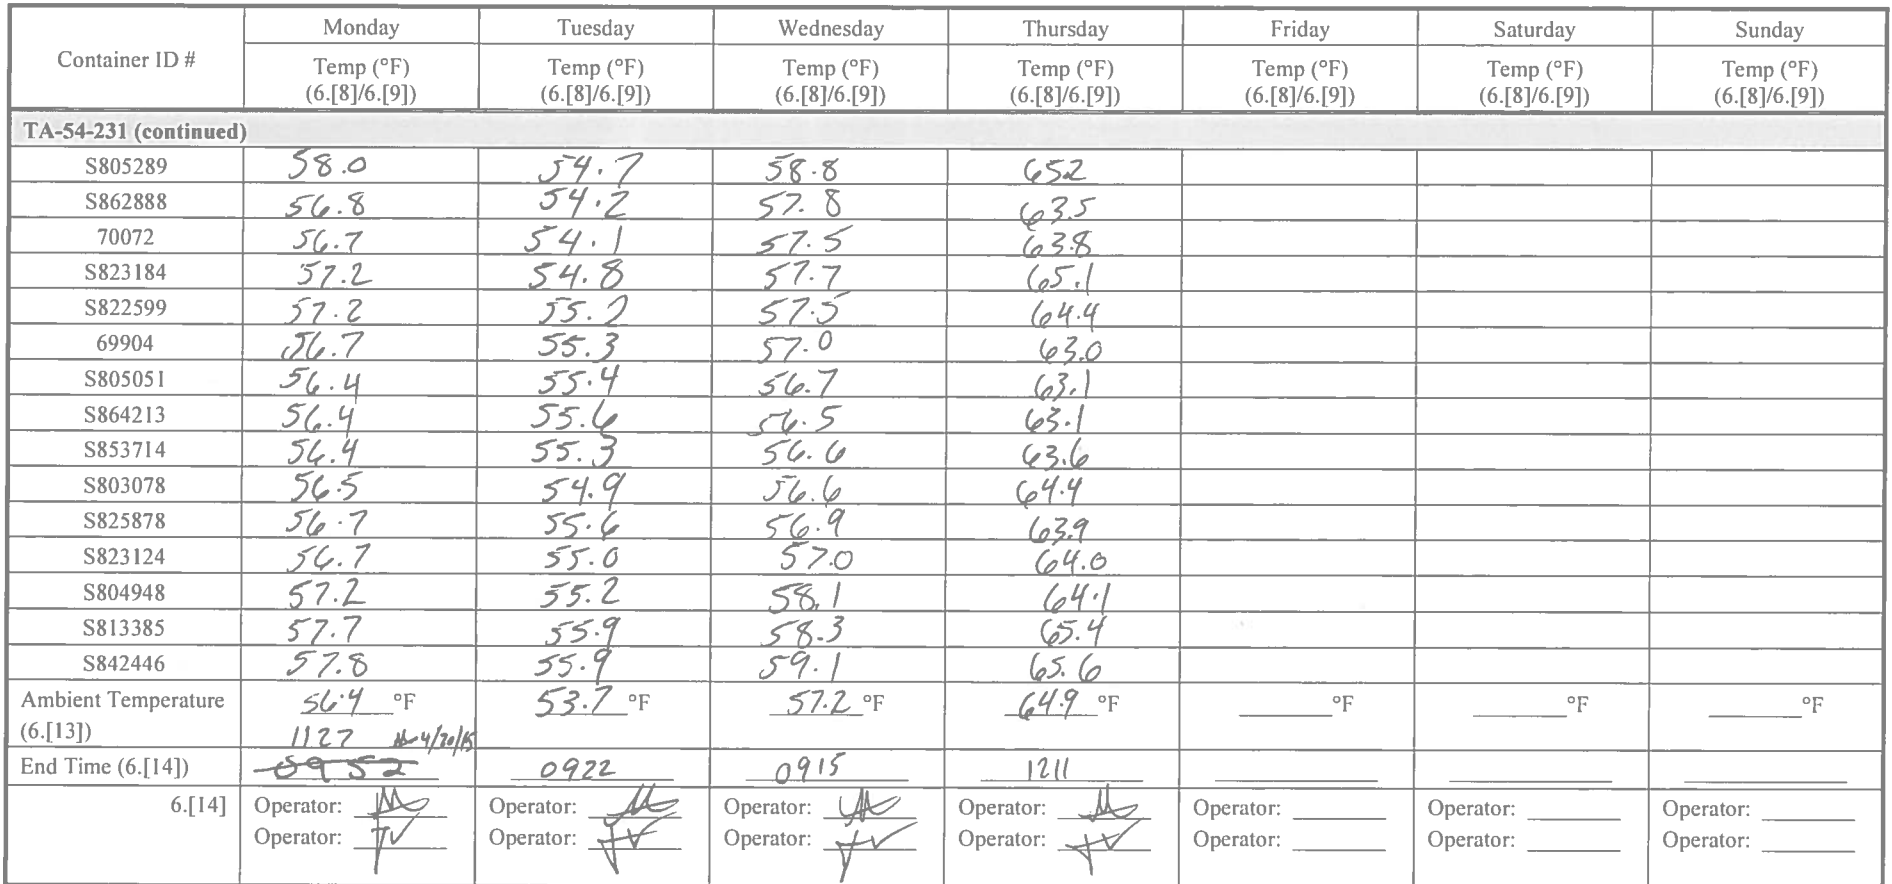 Container ID # Monday Tuesday Wednesday Thursday Friday Saturday Sunday
Temp (°F) Temp (°F) Temp (°F) Temp (°F) Temp (°F) Temp (°F) Temp (°F)
(6.[8]/6.[9]) (6.[8]/6.[9]) (6.[8]/6.[9]) (6.[8]/6.[9]) (6.[8]/6.[9]) (6.[8]/6.[9]) (6.[8]/6.[9])
TA-54-231 (continued)
S805289 58.0 54.7 58.8 65.2
S862888 56.8 54.2 57.8 63.5
70072 56.7 54.1 57.5 63.8
S823184 57.2 54.8 57.7 65.1
S822599 57.2 55.2 57.5 64.4
69904 56.7 55.3 57.0 63.0
S805051 56.4 55.4 56.7 63.1
S864213 56.4 55.6 56.5 63.1
S853714 56.4 55.3 56.6 63.6
S803078 56.5 54.9 56.6 64.4
S825878 56.7 55.6 56.9 63.9
S823124 56.7 55.0 57.0 64.0
S804948 57.2 55.2 58.1 64.1
S813385 57.7 55.9 58.3 65.4
S842446 57.8 55.9 59.1 65.6
Ambient Temperature 56.4 °F 53.7 °F 57.2 °F 64.9 °F °F °F °F
(6.[13]) 1127 4/20/15
End Time (6.[14]) 0952 0922 0915 1211
6.[14] Operator: Operator: Operator: Operator: Operator: Operator: Operator:
Operator: Operator: Operator: Operator: Operator: Operator: Operator: